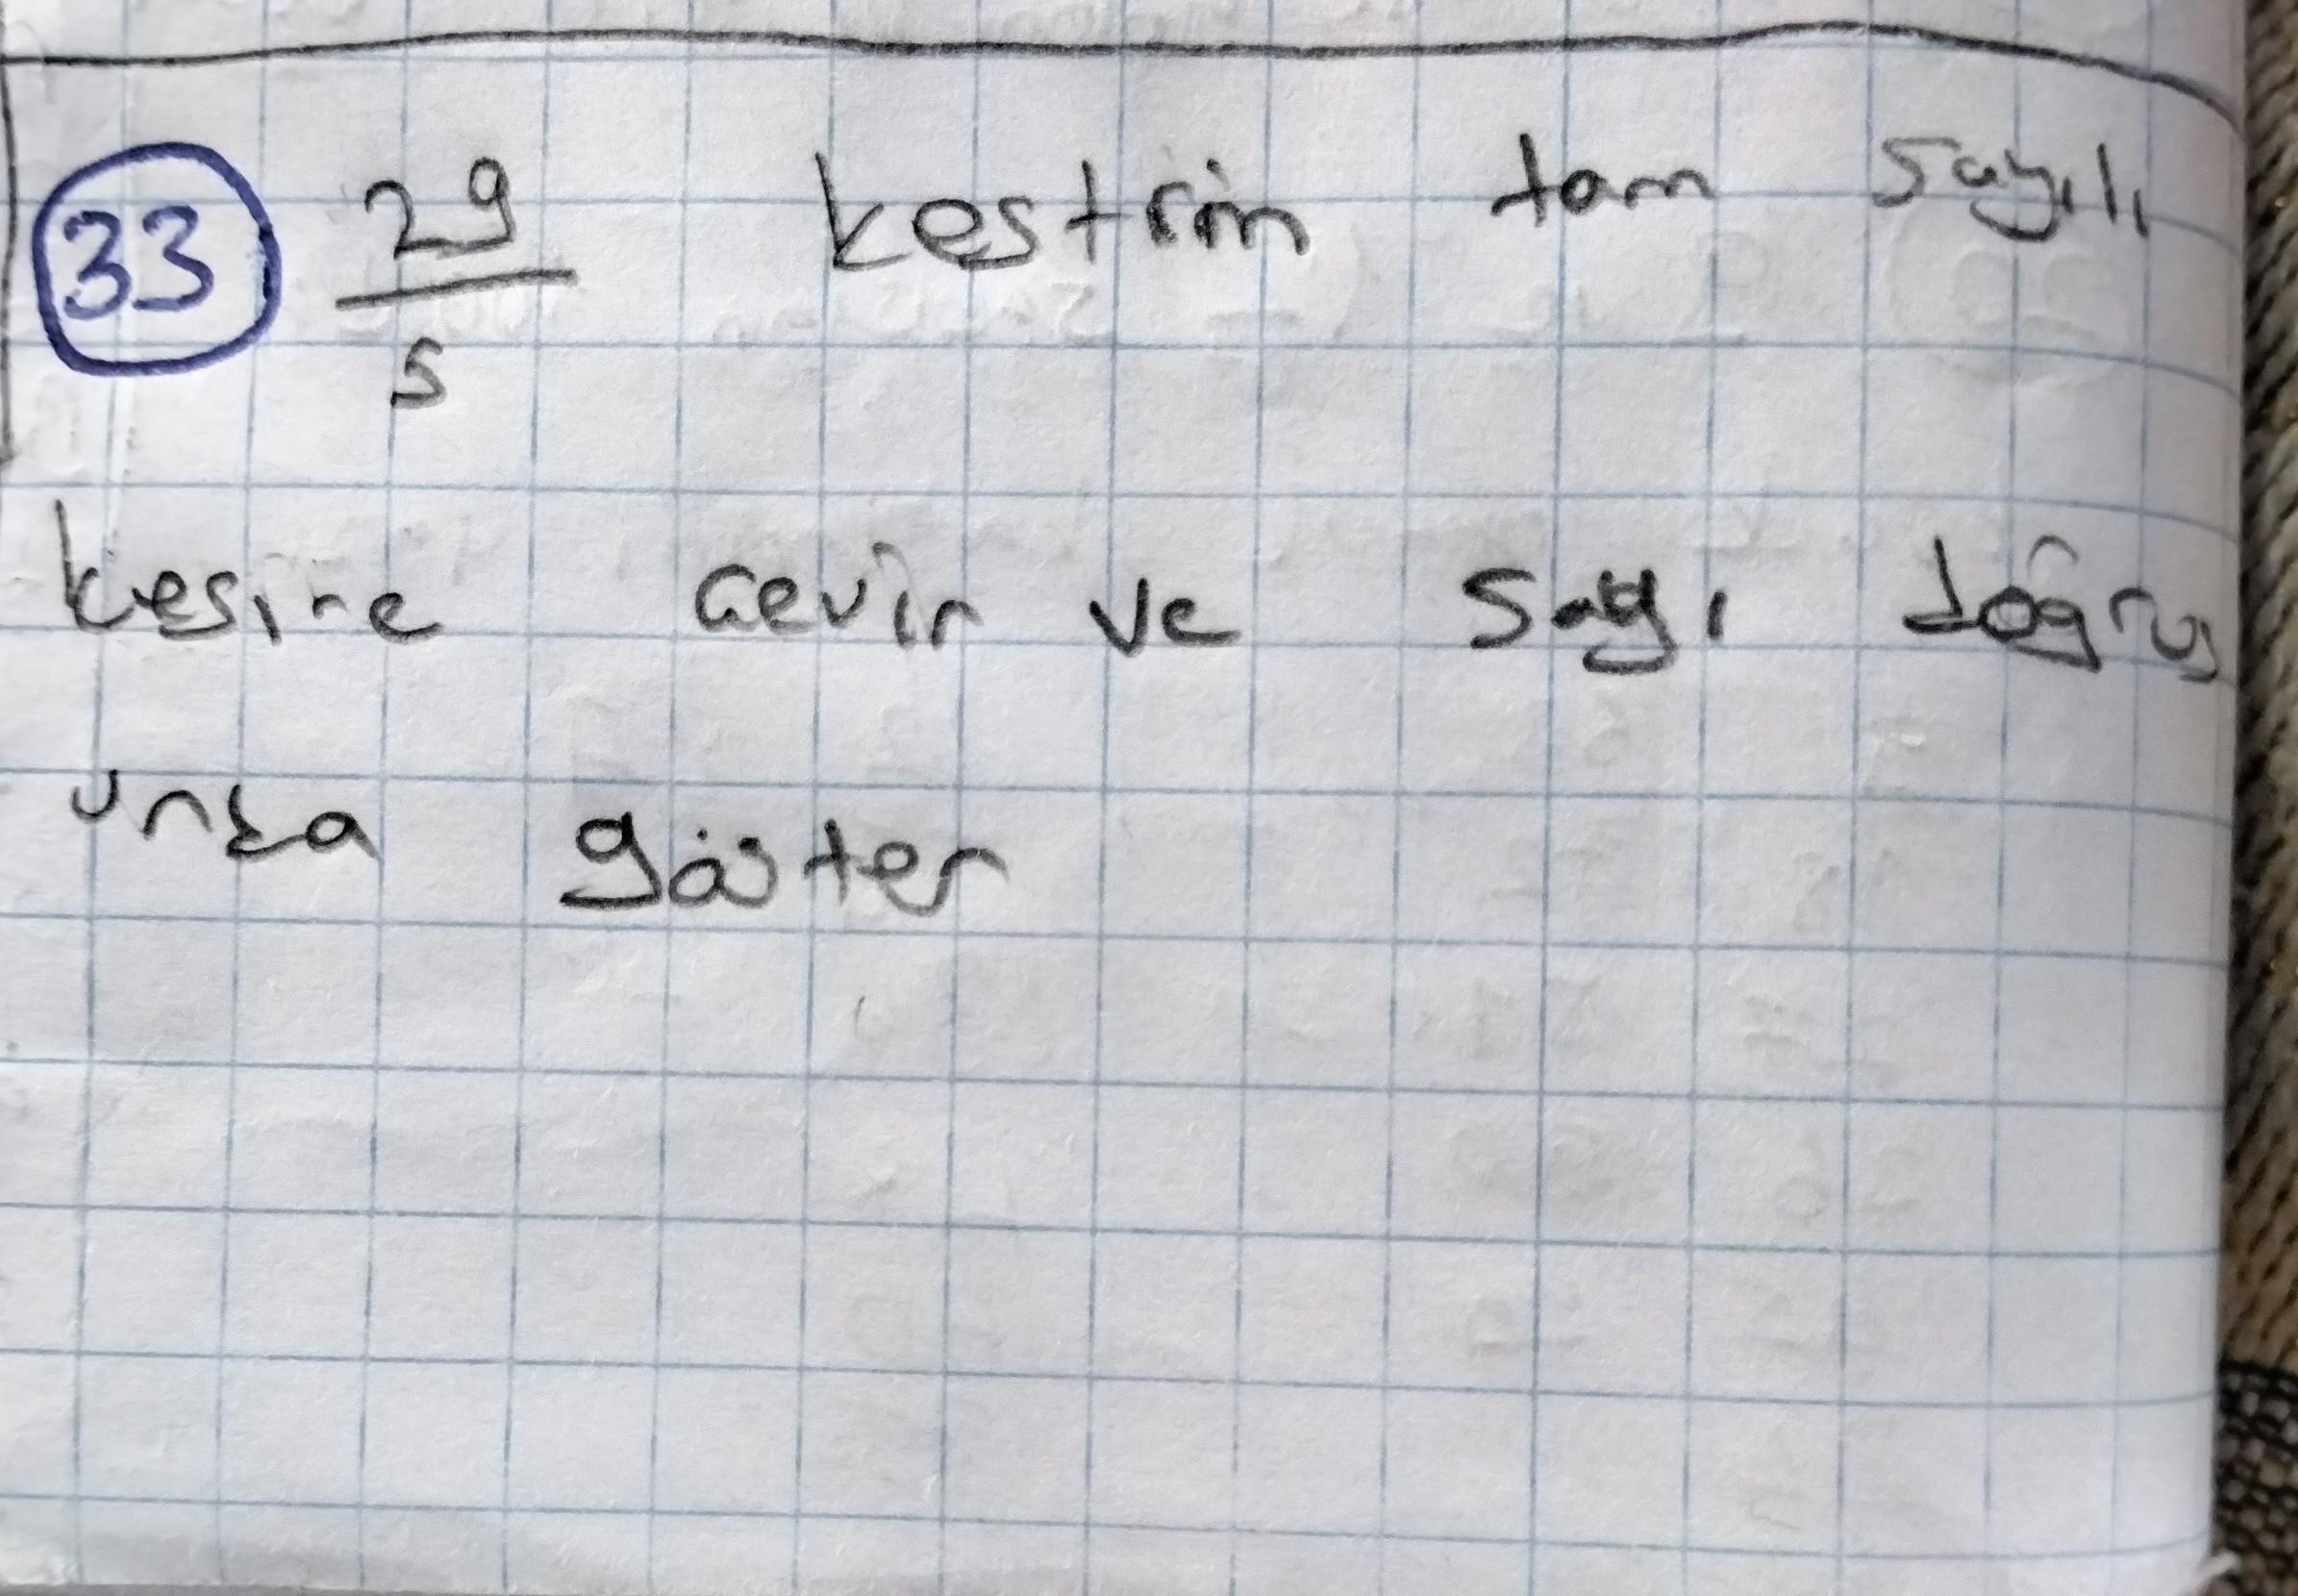 33 29/5 kestrin tam sayılı
kesire çevir ve sayı doğrus
unda göster